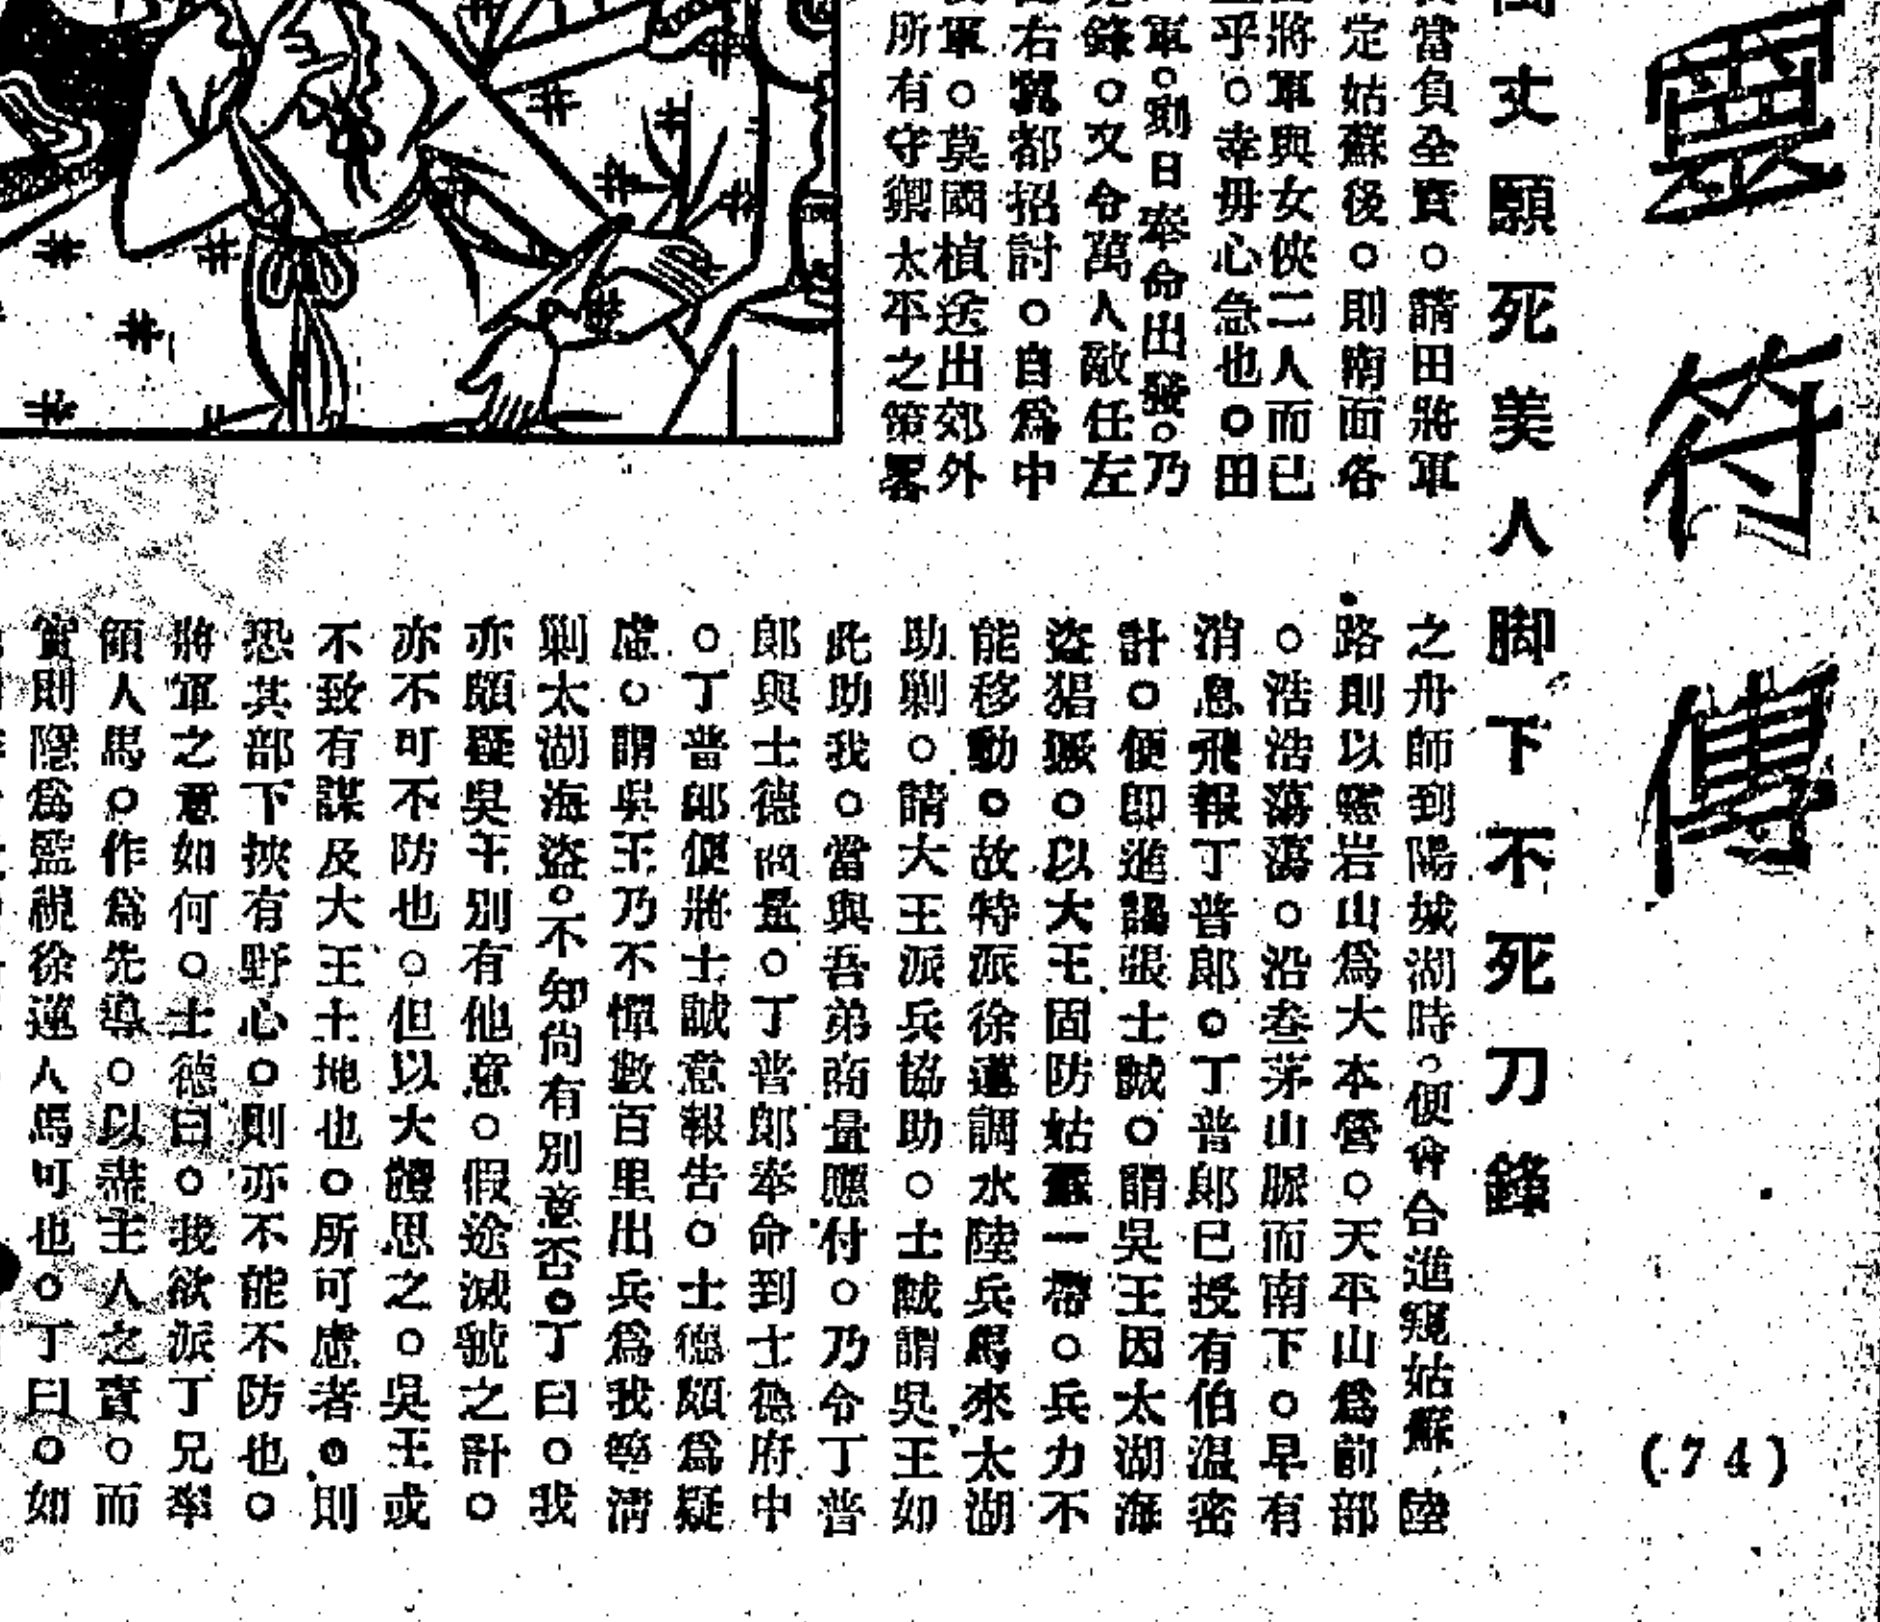 靈符傳
(74)
丈願死美人脚下不死刀鋒
當負全責○請田將軍
定姑蘇後○則南面各
將軍與女俠二人而已
乎○幸毋心急也○田
軍○剋日奉命出發○乃
鋒○又令萬人敵任左
右翼都招討○自爲中
軍○莫國楨送出郊外
所有守禦太平之策畧
之舟師到陽城湖時○便會合進窺姑蘇、陸
路則以靈岩山爲大本營○天平山爲前部
○浩浩蕩蕩○沿着茅山脈而南下○早有
消息飛報丁普郎○丁普郎已授有伯温密
計○便卽進謁張士誠○謂吳王因太湖海
盜猖獗○以大王固防姑蘇一帶○兵力不
能移動○故特派徐達調水陸兵馬來太湖
助剿○請大王派兵協助○士誠謂吳王如
此助我○當與吾弟商量應付○乃令丁普
郎與士德商量○丁普郎奉命到士德府中
○丁普郎便將士誠意報告○士德頗爲疑
慮○謂吳王乃不憚數百里出兵爲我等淸
剿太湖海盜○不知尙有別意否○丁曰○我
亦頗疑吳王別有他意○假途滅虢之計○
亦不可不防也○但以大體思之○吳王或
不致有謀及大王土地也○所可慮者○則
恐其部下挾有野心○則亦不能不防也○
將軍之意如何○士德曰○我欲派丁兄率
領人馬○作爲先導○以盡主人之責○而
實則隱爲監視徐達人馬可也○丁曰○如